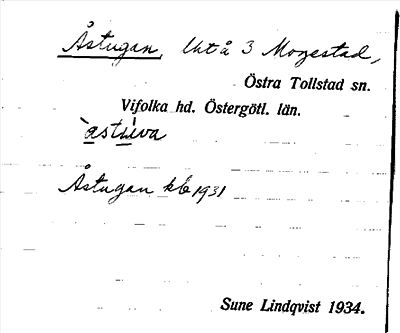 Åstugan, lht å 3 Mogestad,
Östra Tollstad sn.
Vifolka hd. Östergötl. län.
Åstugan kb 1931
Sune Lindqvist 1934.